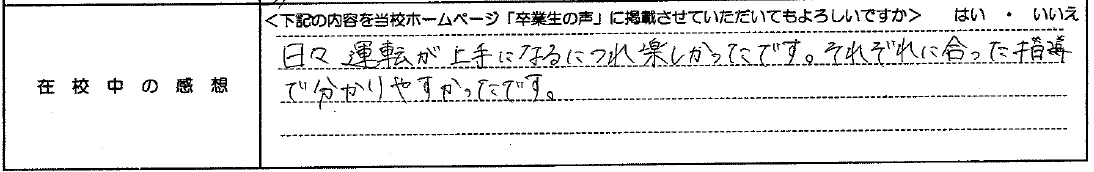 <下記の内容を当校ホームページ「卒業生の声」に掲載させていただいてもよろしいですか> はい ・ いいえ
在校中の感想
日々 運転が上手になるにつれ楽しかったです。それぞれに合った指導
で分かりやすかったです。